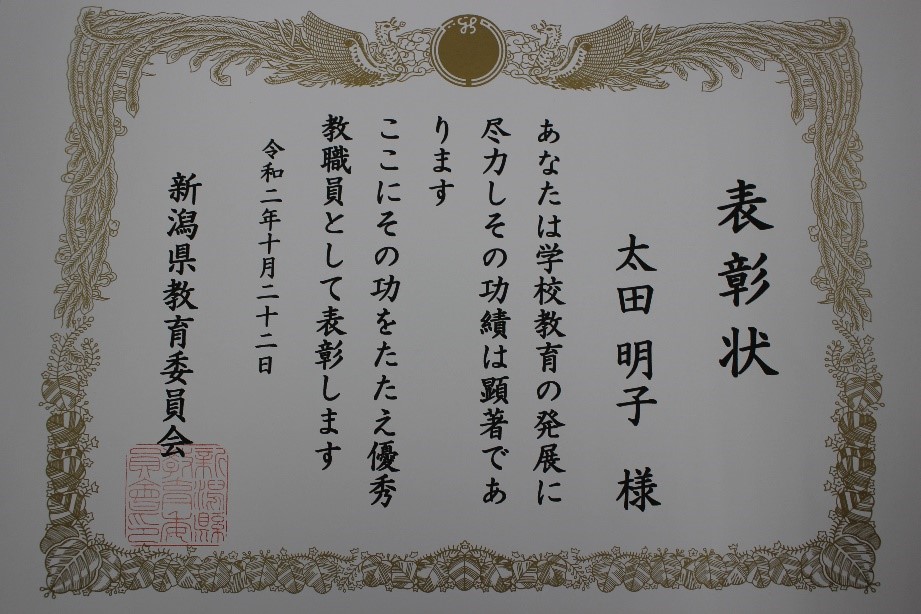 表彰状
太田明子 様
あなたは学校教育の発展に
尽力しその功績は顕著であ
ります
ここにその功をたたえ優秀
教職員として表彰します
令和二年十月二十二日
新潟県教育委員会
新潟縣
教育委
員會印